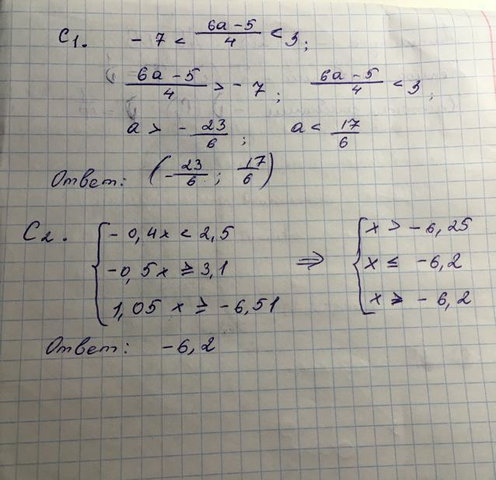 C1. - 7 < (6a - 5)/4 < 3;
(6a - 5)/4 > - 7; (6a - 5)/4 < 3;
a > - 23/6; a < 17/6
Ответ: (- 23/6; 17/6)
C2. { - 0,4x < 2,5 ⇒ { x > - 6,25
-0,5x ≥ 3,1 x ≤ -6,2
1,05 x ≥ -6,51 x ≥ - 6,2
Ответ: -6,2